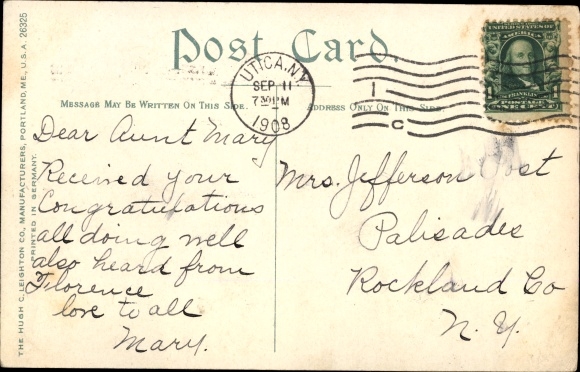 Post Card.
UNITED STATES OF
AMERICA
FRANKLIN
1 POSTAGE 1
ONE CENT
UTICA, N.Y.
SEP 11
7 30 PM
1908
1
C
MESSAGE MAY BE WRITTEN ON THIS SIDE.
ADDRESS ONLY ON THIS SIDE.
Dear Aunt Mary
Received your
Congratulations
all doing well
also heard from
Florence
love to all
Mary.
Mrs. Jefferson Post
Palisades
Rockland Co
N. Y.
THE HUGH C. LEIGHTON CO., MANUFACTURERS, PORTLAND, ME., U.S.A. 26325
PRINTED IN GERMANY.